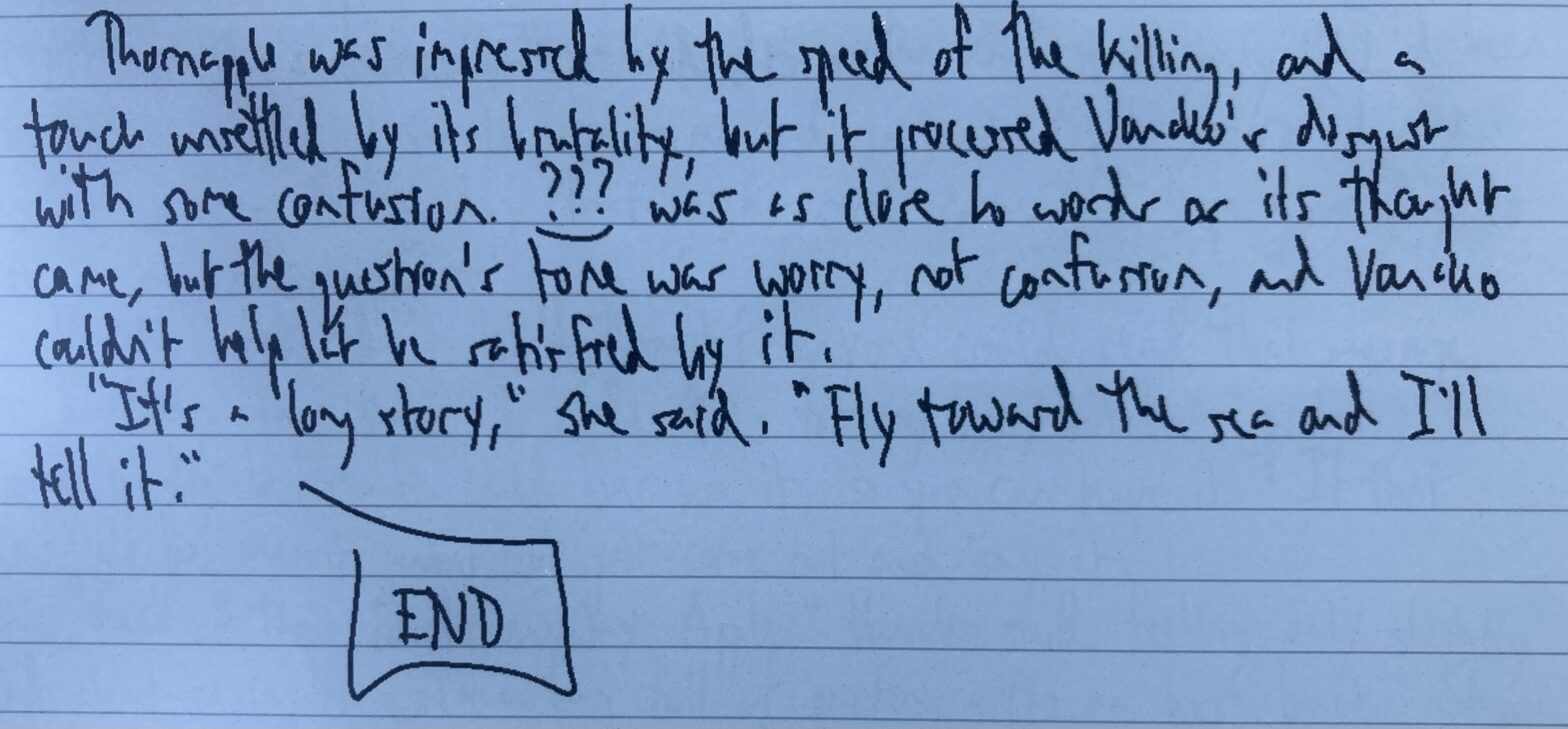 Thornapple was impressed by the speed of the killing, and a
touch unsettled by its brutality, but it processed Vancho's disgust
with some confusion. ??? was as close to words as its thought
came, but the question's tone was worry, not confusion, and Vancho
couldn't help but be satisfied by it.
"It's a long story," she said. "Fly toward the sea and I'll
tell it."
END